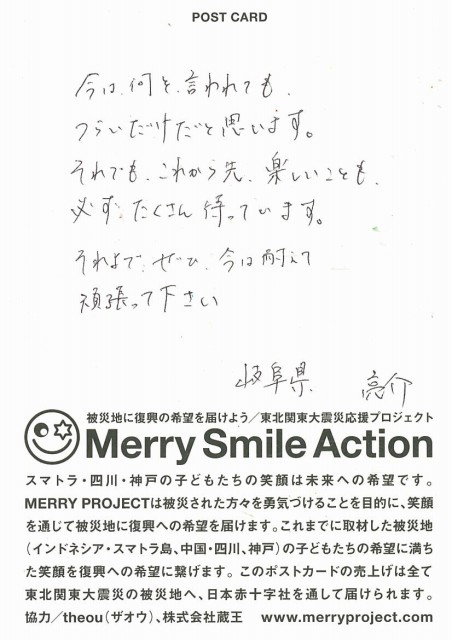 POST CARD
今は、何を、言われても、
つらいだけだと思います。
それでも、これから先、楽しいことも、
必ず、たくさん待っています。
それまで、ぜひ、今は耐えて
頑張って下さい
岐阜県 亮介
被災地に復興の希望を届けよう／東北関東大震災応援プロジェクト
Merry Smile Action
スマトラ・四川・神戸の子どもたちの笑顔は未来への希望です。
MERRY PROJECTは被災された方々を勇気づけることを目的に、笑顔
を通じて被災地に復興への希望を届けます。これまでに取材した被災地
（インドネシア・スマトラ島、中国・四川、神戸）の子どもたちの希望に満ち
た笑顔を復興への希望に繋げます。このポストカードの売上げは全て
東北関東大震災の被災地へ、日本赤十字社を通して届けられます。
協力／theou（ザオウ）、株式会社蔵王 www.merryproject.com